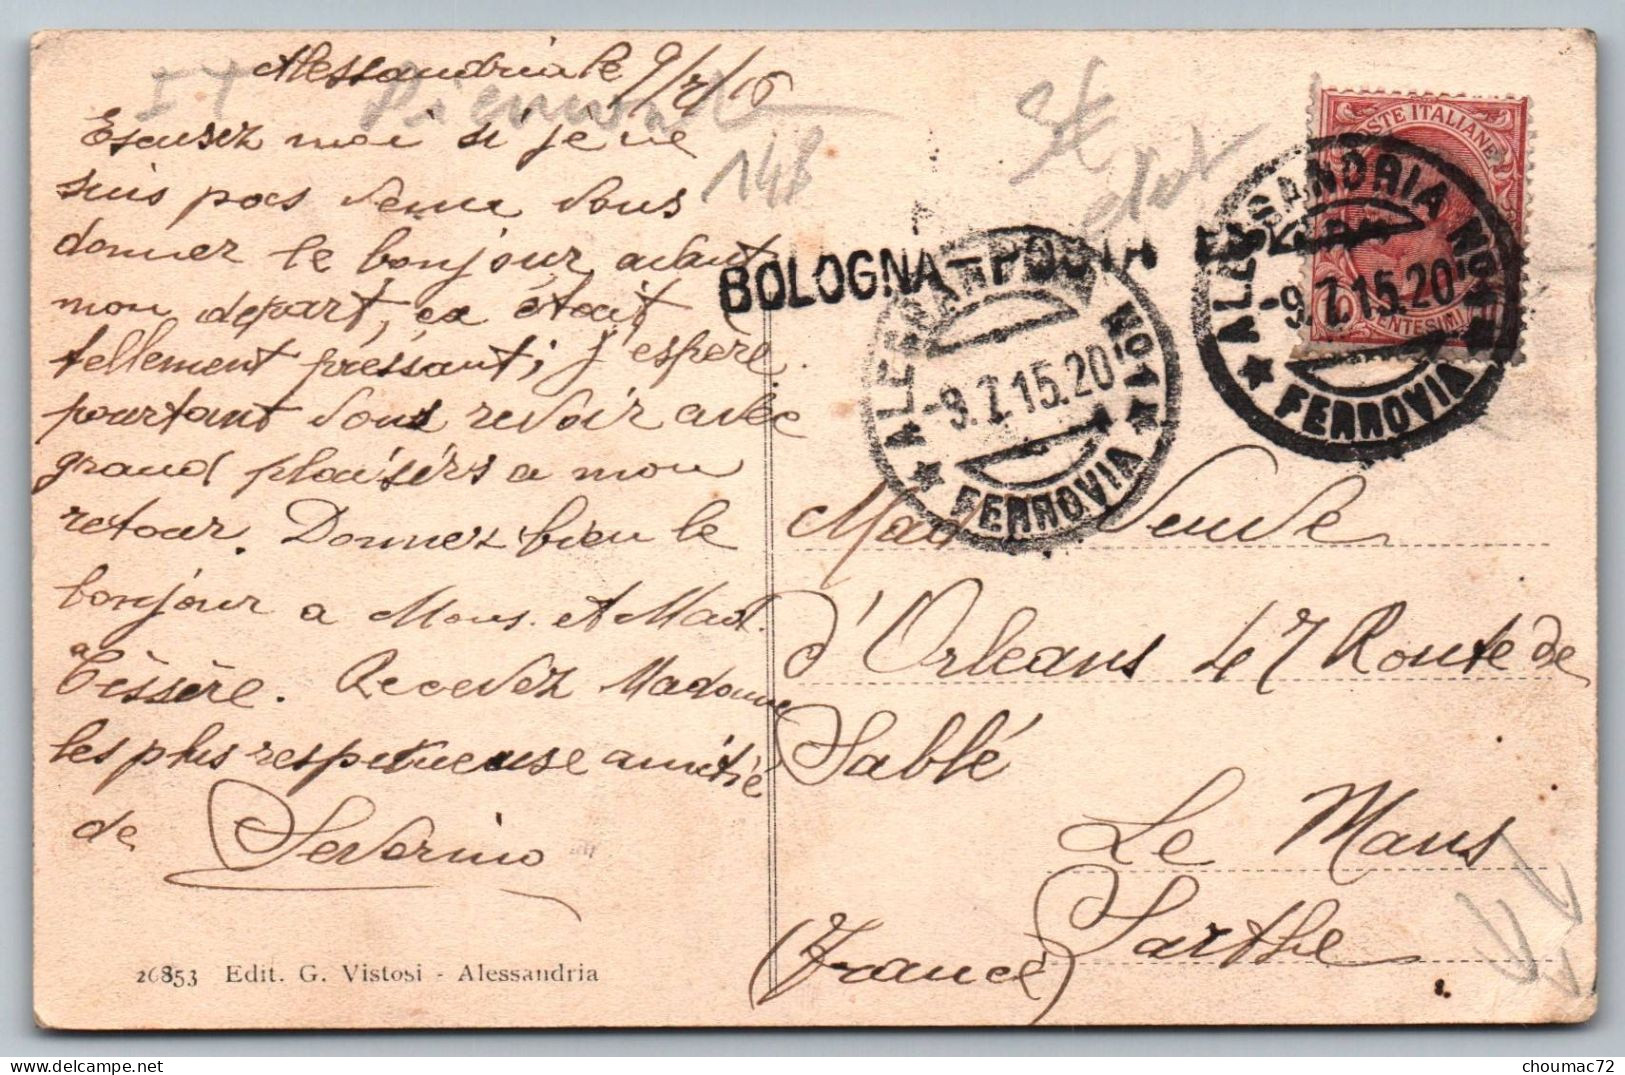 Alessandria le 9/7/15
IT Piemont
148
Escusez moi si je ne
suis pas venu vous
donner le bonjour avant
mon départ, ca était
tellement préssant; j'espère
pourtant vous revoir avec
grand plaisirs a mon
retour. Donnez bien le
bonjour a Mons. et Mad.
Tessère. Recevez Madame
les plus respectueuse amitié
de Severino
26853 Edit. G. Vistosi - Alessandria
BOLOGNA-POSTA
ALESSANDRIA
-9.7.15.20
FERROVIA
POSTE ITALIANE
CENTESIMI
ALESSANDRIA
-9.7.15.20
FERROVIA
Mad Veuve
d'Orleans 47 Route de
Sablé
Le Mans
Sarthe
(France)
choumac72